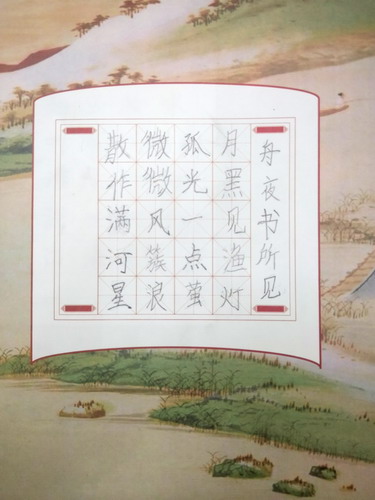 舟夜书所见
月黑见渔灯
孤光一点萤
微微风簇浪
散作满河星